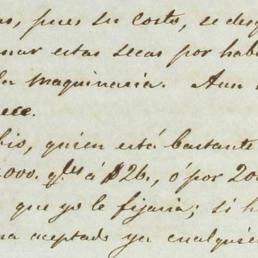 os, pues su costo, se desp
nar estas secas por habe
la maquinaria. Aun
ece.
bio, quien está bastante
,000. q.les á $26., ó por 200
que yo le fijaria; si h
ha aceptado ya cualquie